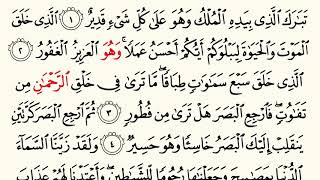 تَبَٰرَكَ ٱلَّذِى بِيَدِهِ ٱلْمُلْكُ وَهُوَ عَلَىٰ كُلِّ شَىْءٍ قَدِيرٌ ﴿١﴾ ٱلَّذِى خَلَقَ
ٱلْمَوْتَ وَٱلْحَيَوٰةَ لِيَبْلُوَكُمْ أَيُّكُمْ أَحْسَنُ عَمَلًا ۚ وَهُوَ ٱلْعَزِيزُ ٱلْغَفُورُ ﴿٢﴾
ٱلَّذِى خَلَقَ سَبْعَ سَمَٰوَٰتٍ طِبَاقًا ۖ مَّا تَرَىٰ فِى خَلْقِ ٱلرَّحْمَٰنِ مِن
تَفَٰوُتٍ ۖ فَٱرْجِعِ ٱلْبَصَرَ هَلْ تَرَىٰ مِن فُطُورٍ ﴿٣﴾ ثُمَّ ٱرْجِعِ ٱلْبَصَرَ كَرَّتَيْنِ
يَنقَلِبْ إِلَيْكَ ٱلْبَصَرُ خَاسِئًا وَهُوَ حَسِيرٌ ﴿٤﴾ وَلَقَدْ زَيَّنَّا ٱلسَّمَآءَ
ٱلدُّنْيَا بِمَصَٰبِيحَ وَجَعَلْنَٰهَا رُجُومًا لِّلشَّيَٰطِينِ ۖ وَأَعْتَدْنَا لَهُمْ عَذَابَ